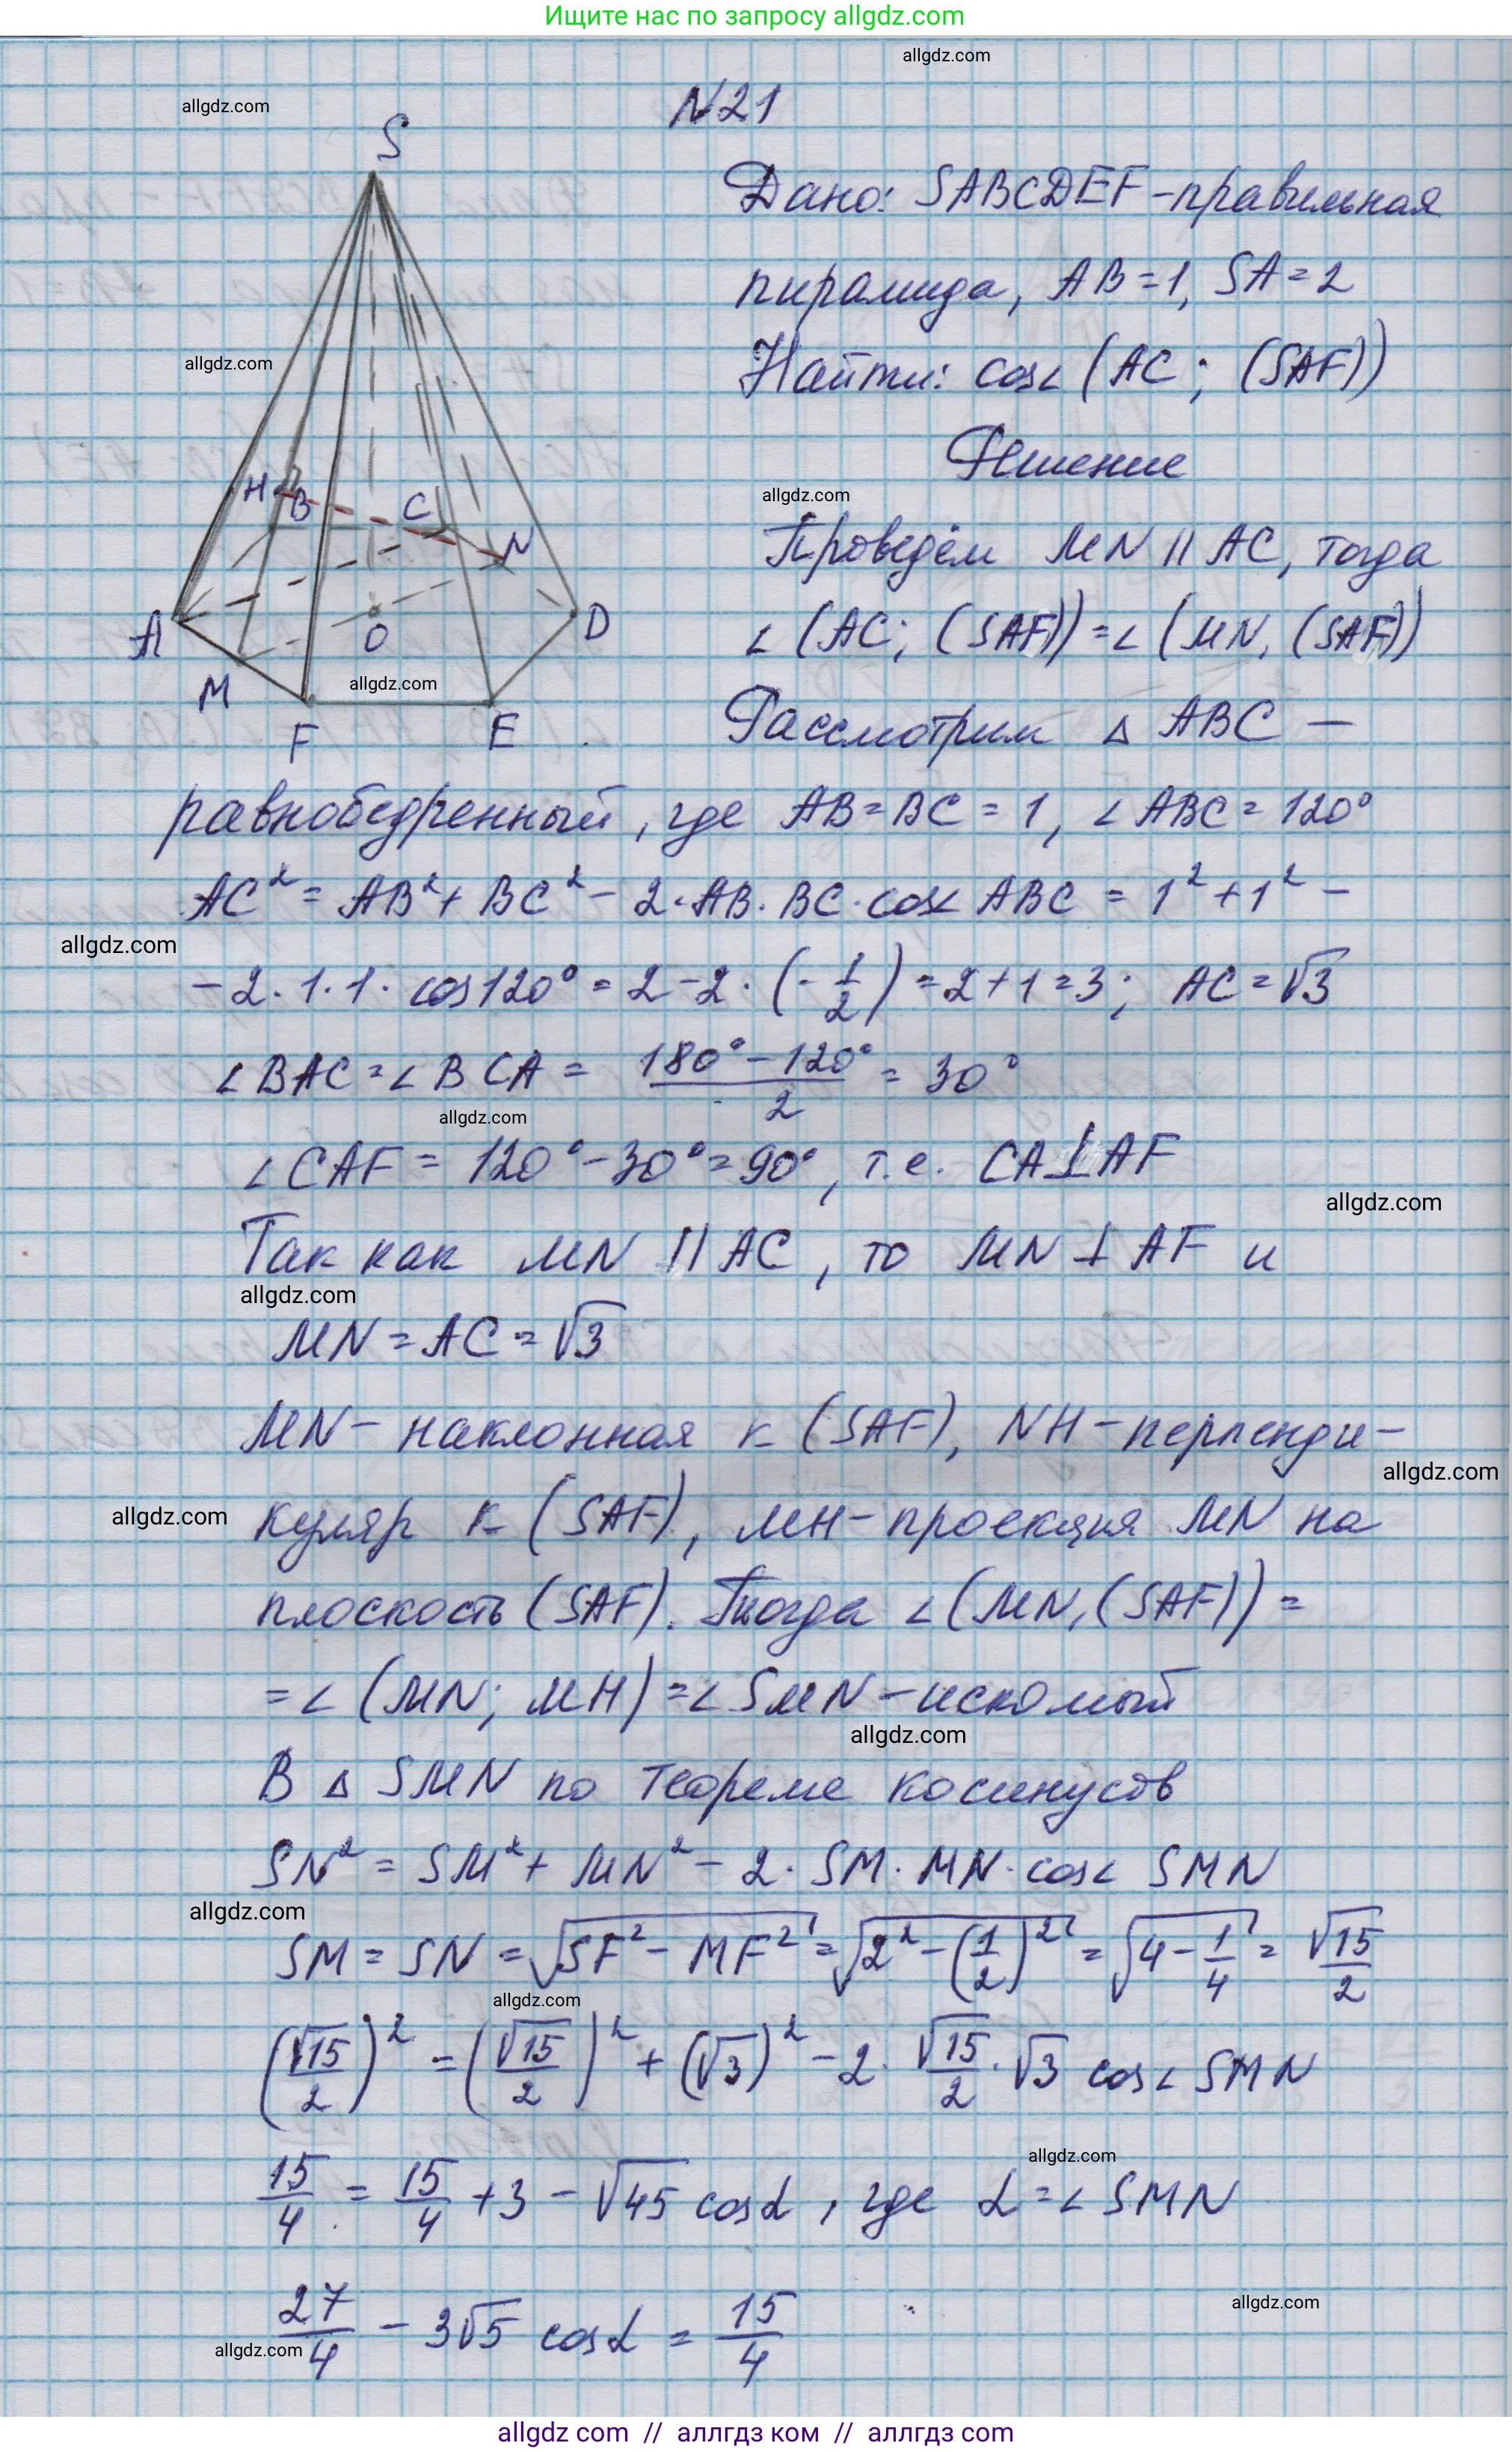 Ищите нас по запросу allgdz.com
allgdz.com
allgdz.com
N21
S
Дано: SABCDEF-правильная
пирамида, AB=1, SA=2
Найти: cos∠(AC; (SAF))
allgdz.com
Решение
H B C N
allgdz.com
Проведём MN || AC, тогда
A O D
∠(AC; (SAF))=∠(MN, (SAF))
M allgdz.com
F E
Рассмотрим △ ABC —
равнобедренный, где AB=BC=1, ∠ABC=120°
AC² = AB²+ BC² - 2·AB·BC·cos∠ABC = 1²+1² -
allgdz.com
-2·1·1·cos120° = 2-2·(-1/2) = 2+1=3; AC=√3
∠BAC=∠BCA = (180°-120°)/2 = 30°
allgdz.com
∠CAF = 120°-30°=90°, т.е. CA⊥AF
allgdz.com
Так как MN || AC, то MN ⊥ AF и
allgdz.com
MN = AC = √3
MN- наклонная к (SAF), NH-перпенди-
allgdz.com
allgdz.com
куляр к (SAF), MH-проекция MN на
плоскость (SAF). Тогда ∠(MN,(SAF)) =
=∠(MN; MH)=∠SMN-искомый
allgdz.com
В △ SMN по теореме косинусов
SN² = SM²+ MN² - 2·SM·MN·cos∠ SMN
allgdz.com
SM = SN = √(SF²-MF²) = √(2²-(1/2)²) = √(4-1/4) = √15/2
allgdz.com
(√15/2)² = (√15/2)² + (√3)² - 2·√15/2·√3 cos∠SMN
allgdz.com
15/4 = 15/4 +3 - √45 cosα, где α=∠SMN
allgdz.com
27/4 - 3√5 cosα = 15/4
allgdz.com
allgdz.com // аллгдз ком // аллгдз com